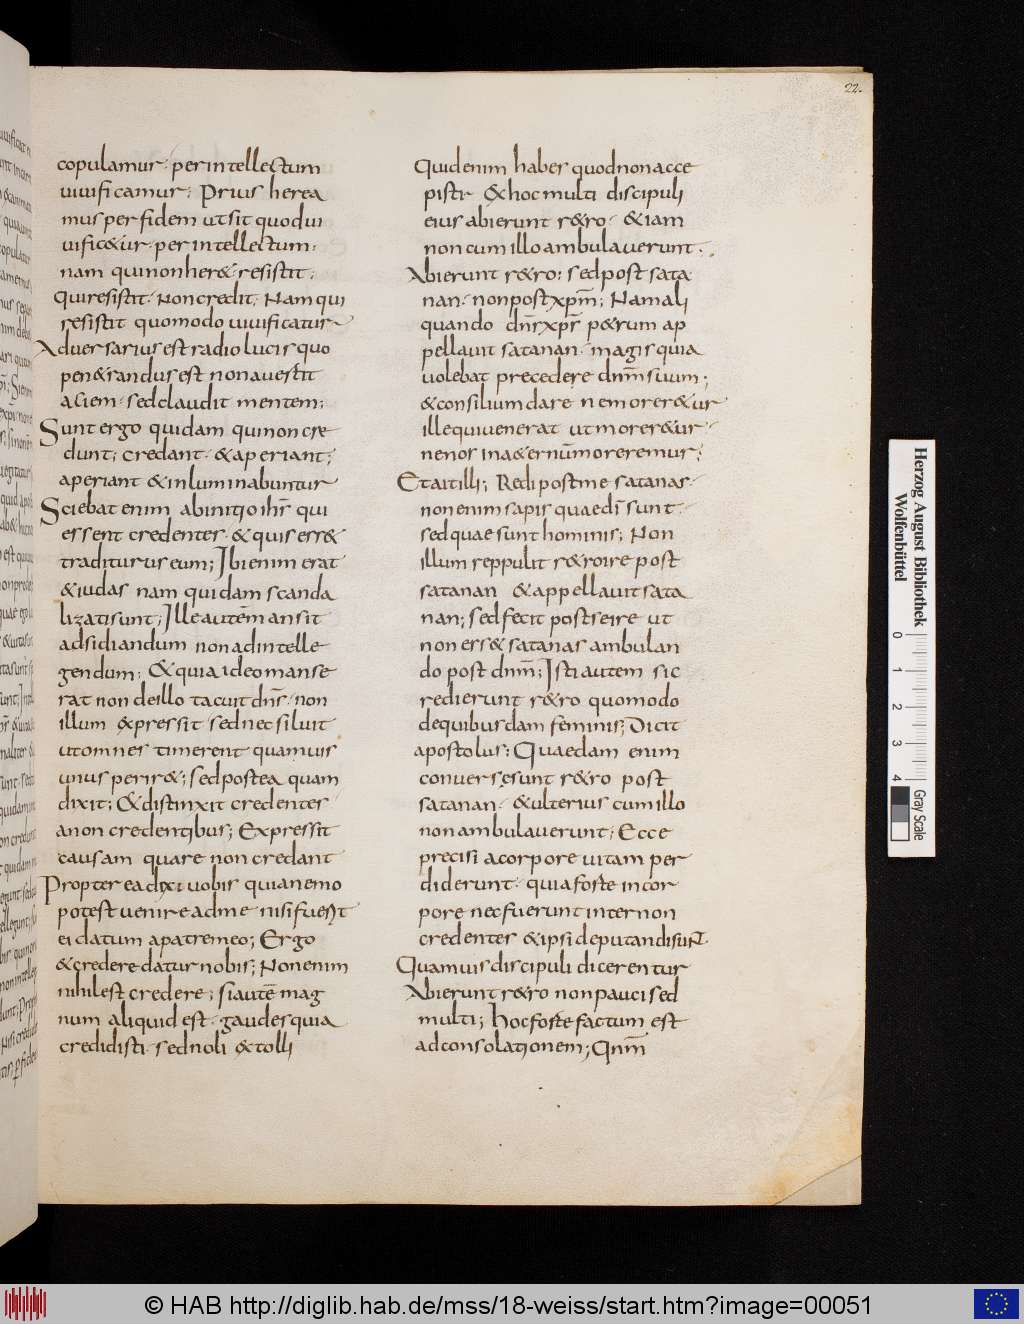 22.
copulamur · per intellectum
uiuificamur; Prius herea
mus per fidem ut sit quod ui
uific&ur · per intellectum ·
nam qui non her& · resistit;
qui resistit · Non credit; Nam qui
resistit quomodo uiuificatur
Aduersarius est radio lucis quo
pen&randus est non auestit
aciem · sed claudit mentem;
Sunt ergo quidam qui non cre
dunt; credant · & aperiant;
aperiant & inluminabuntur
Sciebat enim ab initio ihs̄ qui
essent credentes · & quis ess&
traditurus eum; Ibi enim erat
& iudas nam quidam scanda
lizati sunt; Ille autēm ansit
adsidiandum non ad intelle
gendum; & quia ideo manse
rat non de illo tacuit dn̄s · non
illum expressit sed nec siluit
ut omnes timerent quamuis
unus perir&; sed postea quam
dixit; & distinxit credentes
a non credentibus; Expressit
causam quare non credant
Propterea dixi uobis quia nemo
potest uenire ad me nisi fuerit
ei datum a patre meo; Ergo
& credere datur nobis; Non enim
nihil est credere; si autē mag
num aliquid est · gaudes quia
credidisti · sed noli extolli
Quid enim habes quod non acce
pisti · & hoc multi discipuli
eius abierunt r&ro · & iam
non cum illo ambulauerunt ·
Abierunt r&ro: sed post sata
nan · non post xpm̄; Nam ali
quando dn̄s xps̄ p&rum ap
pellauit satanan · magis quia
uolebat precedere dnm̄ suum;
& consilium dare ne morer&ur
ille qui uenerat ut morer&ur ·
ne nos in a&ernūm moreremur;
Et ait illi; Redi post me satanas ·
non enim sapis quae dī sunt ·
sed quae sunt hominis; Non
illum reppulit r&roire post
satanan & appellauit sata
nan; sed fecit post se ire ut
non ess& satanas ambulan
do post dnm̄; Isti autem sic
redierunt r&ro quomodo
de quibusdam feminis; Dicit
apostolus; Quaedam enim
conuersę sunt r&ro post
satanan · & ulterius cum illo
non ambulauerunt; Ecce
precisi a corpore uitam per
diderunt · quia forte in cor
pore nec fuerunt inter non
credentes & ipsi deputandi sunt
Quamuis discipuli dicerentur
Abierunt r&ro non pauci sed
multi; hoc forte factum est
ad consolationem; Qnm̄
Herzog August Bibliothek
Wolfenbüttel
0 1 2 3 4
Gray Scale
© HAB http://diglib.hab.de/mss/18-weiss/start.htm?image=00051